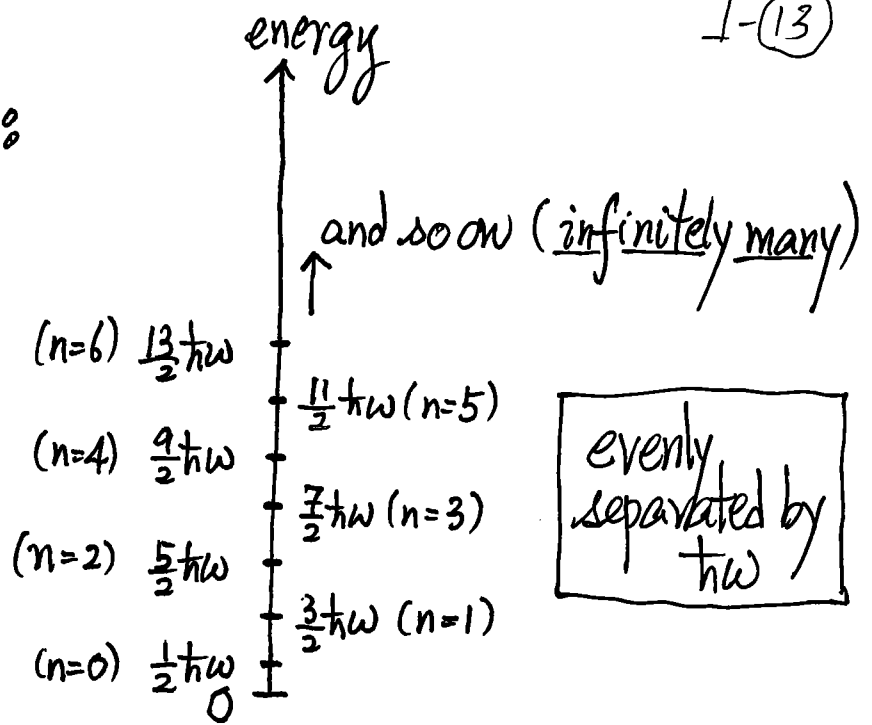 energy
1-(13)
:
and so on (infinitely many)
(n=6) 13/2 ħω
11/2 ħω (n=5)
(n=4) 9/2 ħω
7/2 ħω (n=3)
(n=2) 5/2 ħω
3/2 ħω (n=1)
(n=0) 1/2 ħω
0
evenly
separated by
ħω